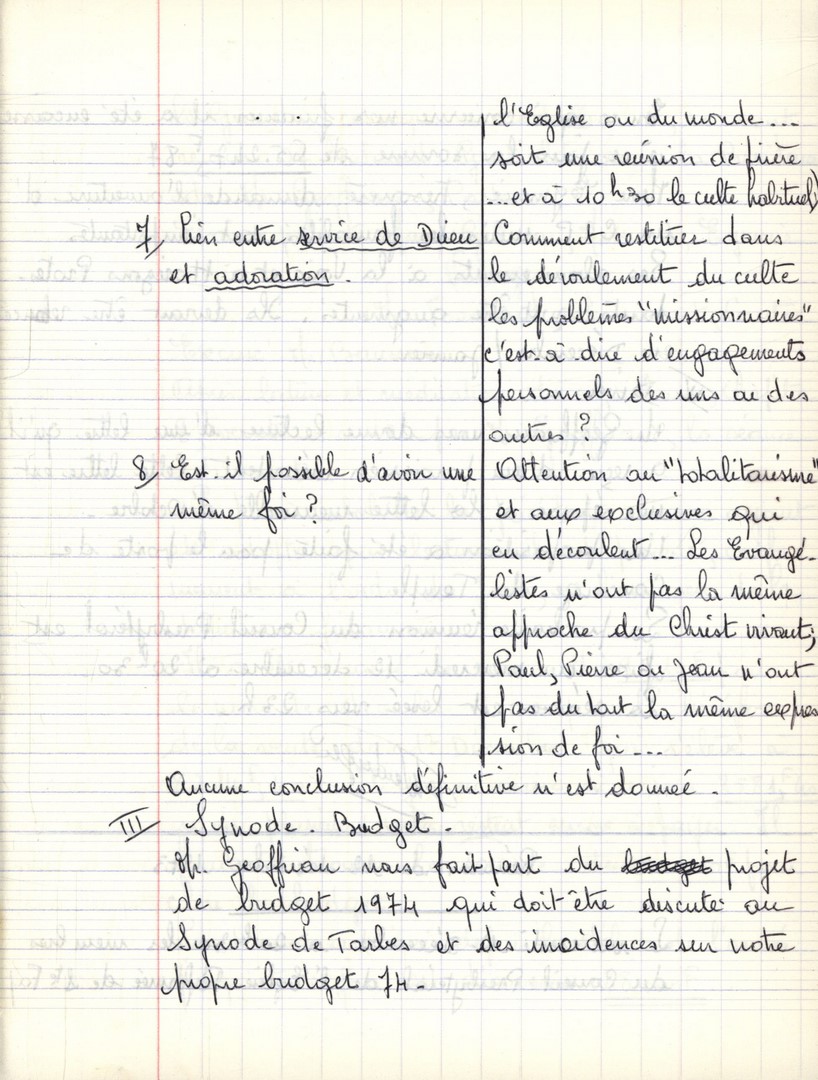 . .
l'Eglise ou du monde...
soit une réunion de prière
...et à 10h30 le culte habituel)
7/ lien entre service de Dieu
et adoration.
Comment restituer dans
le déroulement du culte
les problèmes "missionnaires"
c'est-à-dire d'engagements
personnels des uns ou des
autres ?
8/ Est-il possible d'avoir une
même foi ?
Attention au "totalitarisme"
et aux exclusives qui
en découlent... Les Evangé-
listes n'ont pas la même
approche du Christ vivant;
Paul, Pierre ou Jean n'ont
pas du tout la même expres
sion de foi...
Aucune conclusion définitive n'est donnée.
III Synode. Budget.
M. Geoffriau nous fait part du budget projet
de budget 1974 qui doit-être discuté au
Synode de Tarbes et des incidences sur notre
propre budget 74.